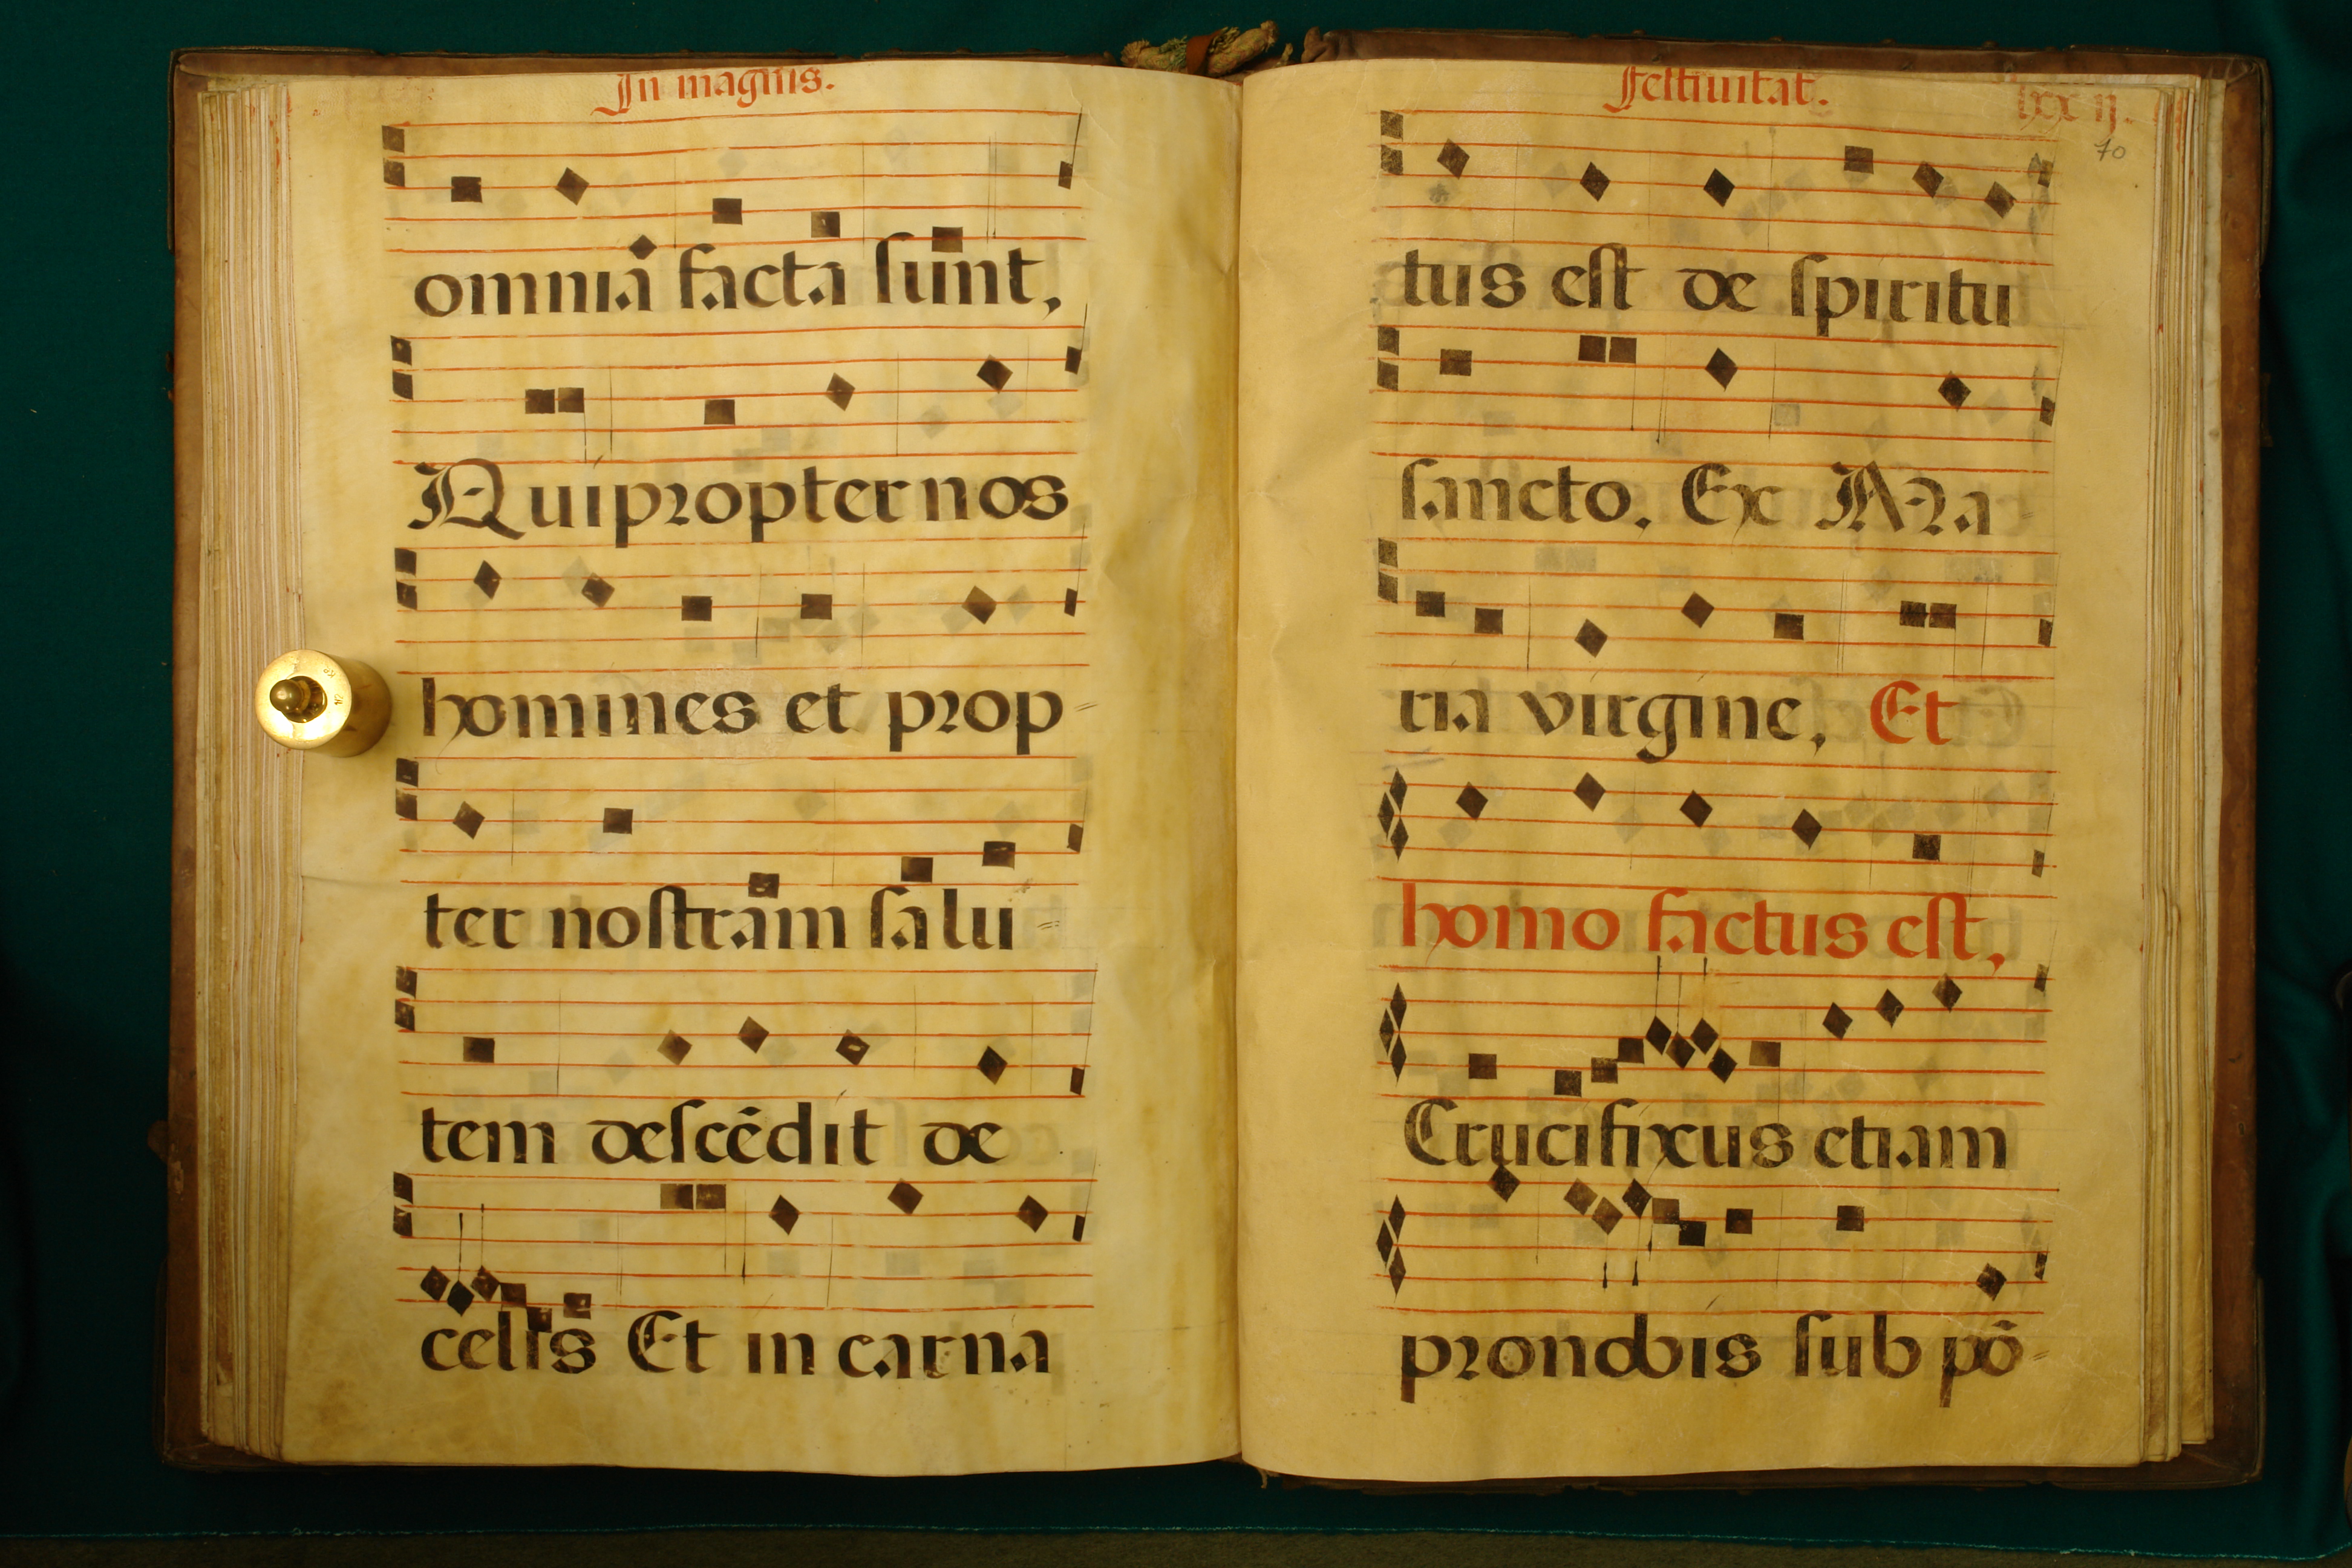 In magnis.
omnia facta sunt,
Qui propter nos
homines et prop=
ter nostram salu=
tem descēdit de
celis Et in carna
festiuitat. lxx ij.
70
tus est de spiritu
sancto. Ex Ma
ria virgine, Et
homo factus est,
Crucifixus etiam
pro nobis sub pō=